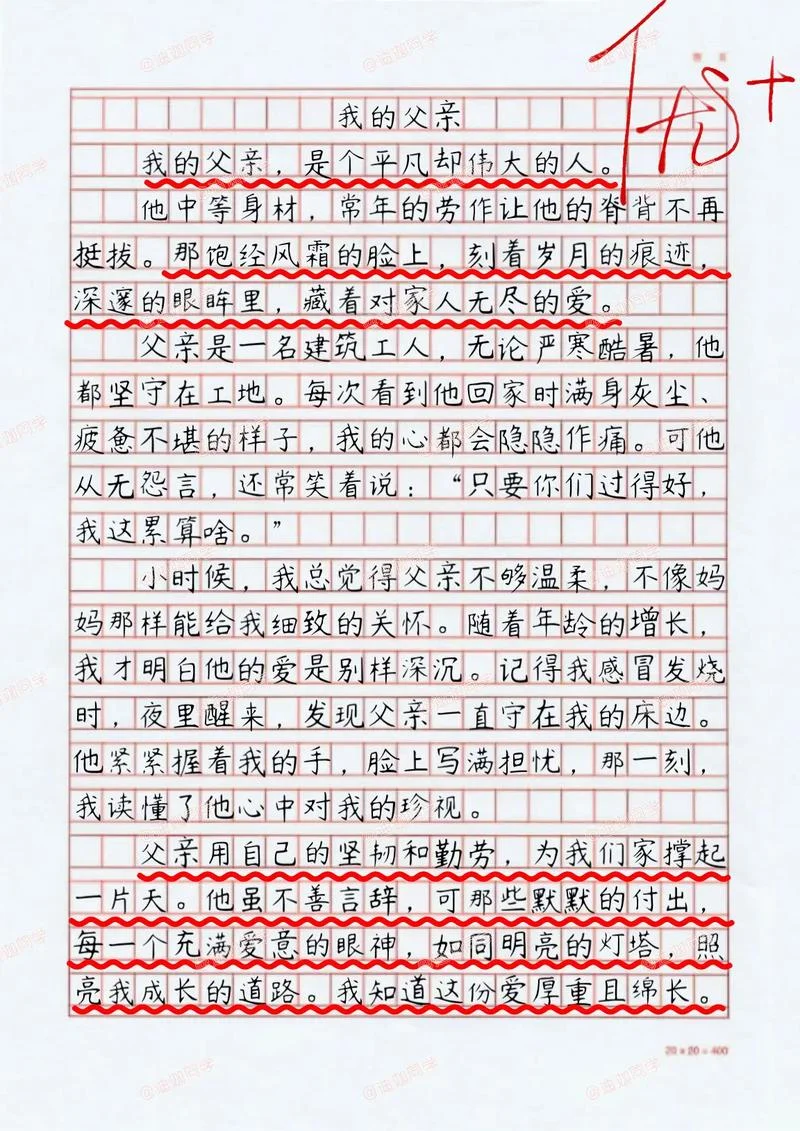 优+
我的父亲
我的父亲，是个平凡却伟大的人。
他中等身材，常年的劳作让他的脊背不再
挺拔。那饱经风霜的脸上，刻着岁月的痕迹，
深邃的眼眸里，藏着对家人无尽的爱。
父亲是一名建筑工人，无论严寒酷暑，他
都坚守在工地。每次看到他回家时满身灰尘、
疲惫不堪的样子，我的心都会隐隐作痛。可他
从无怨言，还常笑着说：“只要你们过得好，
我这累算啥。”
小时候，我总觉得父亲不够温柔，不像妈
妈那样能给我细致的关怀。随着年龄的增长，
我才明白他的爱是别样深沉。记得我感冒发烧
时，夜里醒来，发现父亲一直守在我的床边。
他紧紧握着我的手，脸上写满担忧，那一刻，
我读懂了他心中对我的珍视。
父亲用自己的坚韧和勤劳，为我们家撑起
一片天。他虽不善言辞，可那些默默的付出，
每一个充满爱意的眼神，如同明亮的灯塔，照
亮我成长的道路。我知道这份爱厚重且绵长。
20×20=400
@迪迦同学